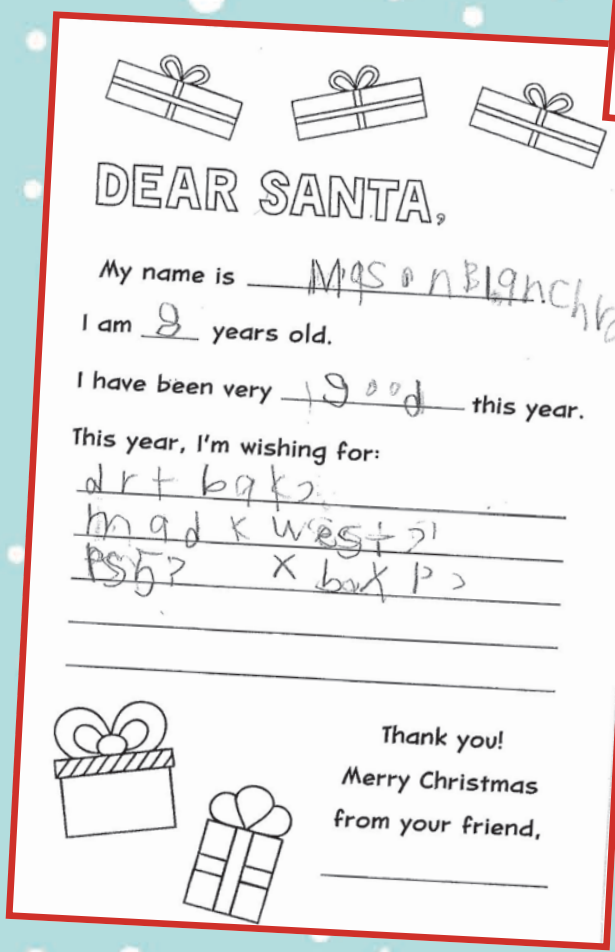 DEAR SANTA,
My name is Mason Blancha
I am 8 years old.
I have been very good this year.
This year, I'm wishing for:
drt bak?
mad x west ?
PS5? x box P ?
Thank you!
Merry Christmas
from your friend,